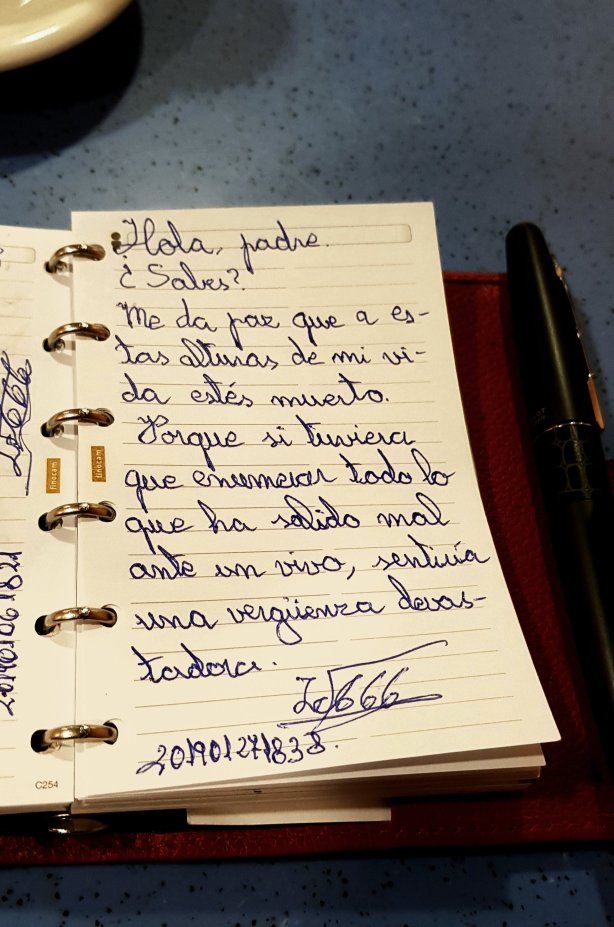 Hola, padre.
¿Sabes?
Me da paz que a es-
tas alturas de mi vi-
da estés muerto.
Porque si tuviera
que enumerar todo lo
que ha salido mal
ante un vivo, sentiría
una vergüenza devas-
tadora.
666
201901271838.
finocam
finocam
C254
201901061821